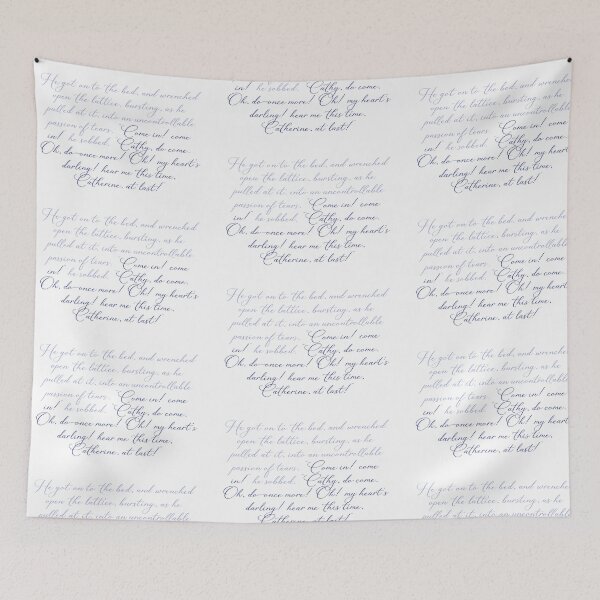 He got on to the bed, and wrenched
open the lattice, bursting, as he
pulled at it, into an uncontrollable
passion of tears. 'Come in! come
in!' he sobbed. 'Cathy, do come.
Oh, do—once more! Oh! my heart's
darling! hear me this time,
Catherine, at last!'
He got on to the bed, and wrenched
open the lattice, bursting, as he
pulled at it, into an uncontrollable
passion of tears. 'Come in! come
in!' he sobbed. 'Cathy, do come.
Oh, do—once more! Oh! my heart's
darling! hear me this time,
Catherine, at last!'
He got on to the bed, and wrenched
open the lattice, bursting, as he
pulled at it, into an uncontrollable
passion of tears. 'Come in! come
in!' he sobbed. 'Cathy, do come.
Oh, do—once more! Oh! my heart's
darling! hear me this time,
Catherine, at last!'
He got on to the bed, and wrenched
open the lattice, bursting, as he
pulled at it, into an uncontrollable
in!' he sobbed. 'Cathy, do come.
Oh, do—once more! Oh! my heart's
darling! hear me this time,
Catherine, at last!'
He got on to the bed, and wrenched
open the lattice, bursting, as he
pulled at it, into an uncontrollable
passion of tears. 'Come in! come
in!' he sobbed. 'Cathy, do come.
Oh, do—once more! Oh! my heart's
darling! hear me this time,
Catherine, at last!'
He got on to the bed, and wrenched
open the lattice, bursting, as he
pulled at it, into an uncontrollable
passion of tears. 'Come in! come
in!' he sobbed. 'Cathy, do come.
Oh, do—once more! Oh! my heart's
darling! hear me this time,
Catherine, at last!'
He got on to the bed, and wrenched
open the lattice, bursting, as he
pulled at it, into an uncontrollable
passion of tears. 'Come in! come
in!' he sobbed. 'Cathy, do come.
Oh, do—once more! Oh! my heart's
darling! hear me this time,
Catherine, at last!'
He got on to the bed, and wrenched
open the lattice, bursting, as he
pulled at it, into an uncontrollable
passion of tears. 'Come in! come
in!' he sobbed. 'Cathy, do come.
Oh, do—once more! Oh! my heart's
darling! hear me this time,
Catherine, at last!'
He got on to the bed, and wrenched
open the lattice, bursting, as he
pulled at it, into an uncontrollable
passion of tears. 'Come in! come
in!' he sobbed. 'Cathy, do come.
Oh, do—once more! Oh! my heart's
darling! hear me this time,
Catherine, at last!'
He got on to the bed, and wrenched
open the lattice, bursting, as he
pulled at it, into an uncontrollable
passion of tears. 'Come in! come
in!' he sobbed. 'Cathy, do come.
Oh, do—once more! Oh! my heart's
darling! hear me this time,
Catherine, at last!'
He got on to the bed, and wrenched
open the lattice, bursting, as he
pulled at it, into an uncontrollable